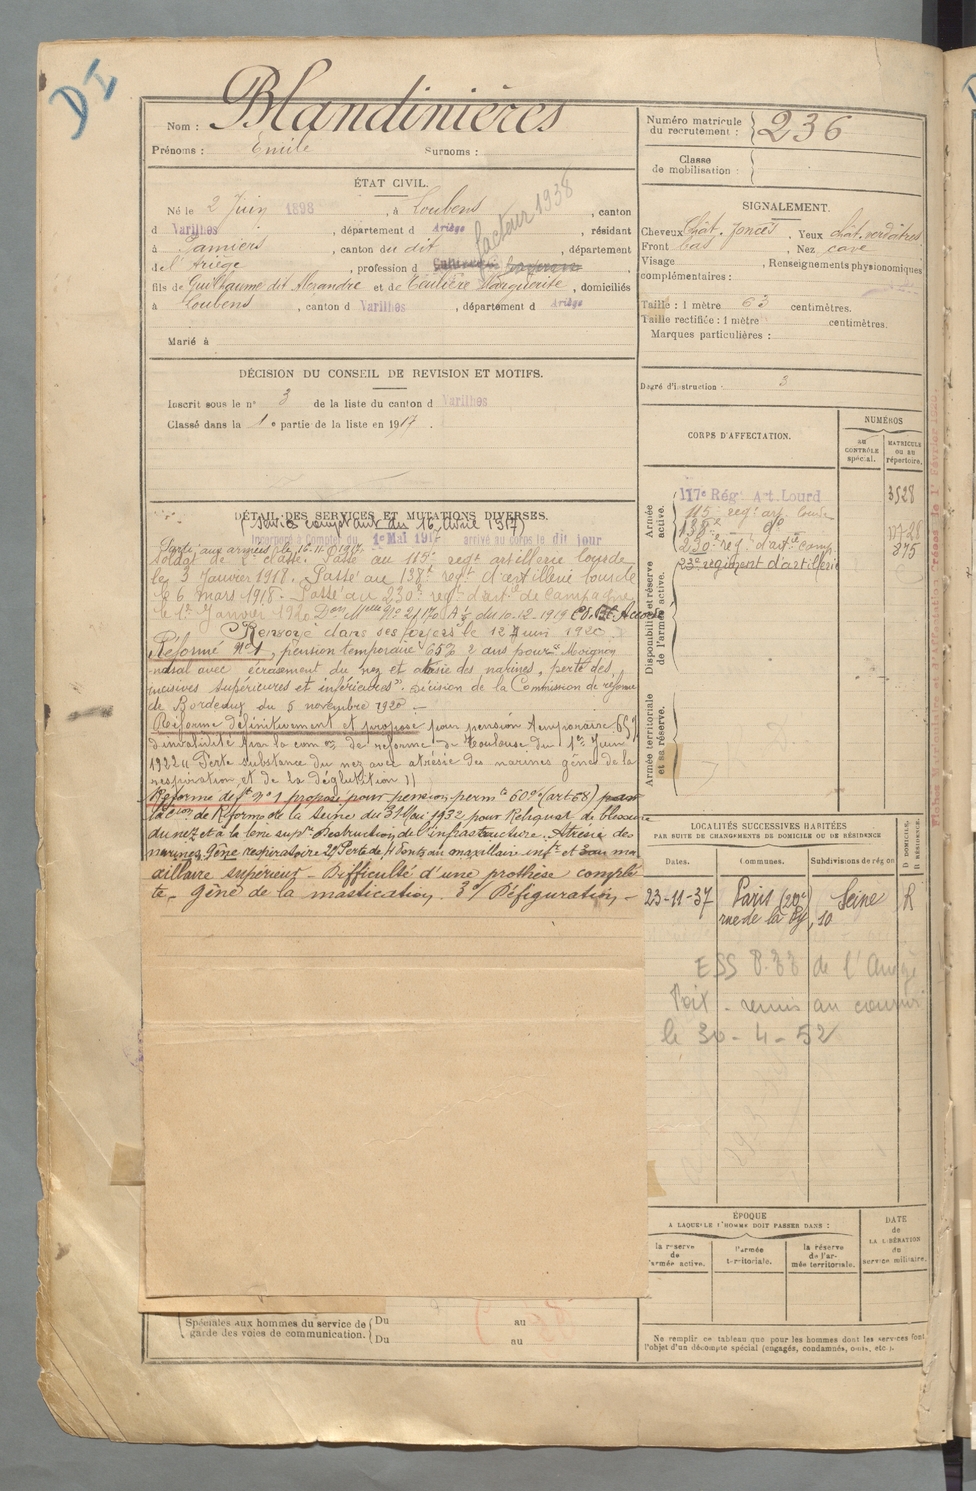 DI
Nom : Blandinières
Prénoms : Emile Surnoms :
Numéro matricule du recrutement : 236
Classe de mobilisation :
ÉTAT CIVIL.
Né le 2 Juin 1898, à Loubens, canton
d Varilhes, département d Ariège, résidant
à Pamiers, canton du dit, département
de l'Ariège, profession d
facteur 1938
fils de Guilhaume dit Alexandre et de Marguerite, domiciliés
à Loubens, canton d Varilhes, département d Ariège
Marié à
SIGNALEMENT.
Cheveux Chât. foncés. Yeux chât. verdâtres
Front bas, Nez cave
Visage , Renseignements physionomiques
complémentaires :
Taille : 1 mètre 63 centimètres.
Taille rectifiée : 1 mètre centimètres.
Marques particulières :
Degré d'instruction : 3
DÉCISION DU CONSEIL DE REVISION ET MOTIFS.
Inscrit sous le n° 3 de la liste du canton d Varilhes
Classé dans la 1e partie de la liste en 1917.
DÉTAIL DES SERVICES ET MUTATIONS DIVERSES.
(Service comptant du 16 Avril 1917)
Incorporé à Compter du 1er Mai 1917 arrivé au corps le dit jour
soldat de 2e classe. Passé au 115e regt artillerie lourde
le 3 Janvier 1918. Passé au 138e regt d'artillerie lourde
le 6 mars 1918. Passé au 230e regt d'artie de campagne
le 1er Janvier 1920 du 10-12-1919
Renvoyé dans ses foyers le 12 Juin 1920.
Réformé N°1, pension temporaire 65% 2 ans pour Moignon
nasal avec écrasement du nez et atrésie des narines, perte des
incisives supérieures et inférieures". Décision de la Commission de réforme
de Bordeaux du 5 novembre 1920 -
Réforme définitivement et proposé pour pension temporaire 65%
d'invalidité par la com on de réforme de Toulouse du 1er Juin
1922 " Perte substance du nez avec atrésie des narines gêne de la
respiration et de la déglutition "
Réformé deft n°1 proposé pour pension permte 60% (art 68) par
la Cion de Réforme de la Seine du 31 Mai 1932 pour Reliquat de blessure
du nez et à la lèvre supre Destruction de l'infrastructure. Atrésie des
narines, gêne respiratoire 2° Perte de 4 Dents au maxillaire infr et 3 au ma
xillaire supérieur - Difficulté d'une prothèse complè
te - gêne de la mastication. 3° Défiguration -
CORPS D'AFFECTATION.
NUMÉROS
AU CONTRÔLE spécial.
MATRICULE OU AU répertoire.
Armée active.
117e Régt Art. Lourd 3528
115e regt art. lourde
138e do
230e regt d'artie camp. 375
23e régiment d'artillerie
Disponibilité et réserve de l'armée active.
Armée territoriale et sa réserve.
LOCALITÉS SUCCESSIVES HABITÉES
PAR SUITE DE CHANGEMENTS DE DOMICILE OU DE RÉSIDENCE
D DOMICILE, R RÉSIDENCE.
Dates. Communes. Subdivisions de région
23-11-37 Paris (20e) Seine R
rue de la Py, 10
de l'Ariège
- remis au courrier
le 30-4-52
ÉPOQUE
A LAQUELLE L'HOMME DOIT PASSER DANS :
DATE de LA LIBÉRATION du service militaire.
la réserve de l'armée active.
l'armée territoriale.
la réserve de l'armée territoriale.
Spéciales aux hommes du service de garde des voies de communication.
Du au
Du au
Ne remplir ce tableau que pour les hommes dont les services font
l'objet d'un décompte spécial (engagés, condamnés, omis, etc.).